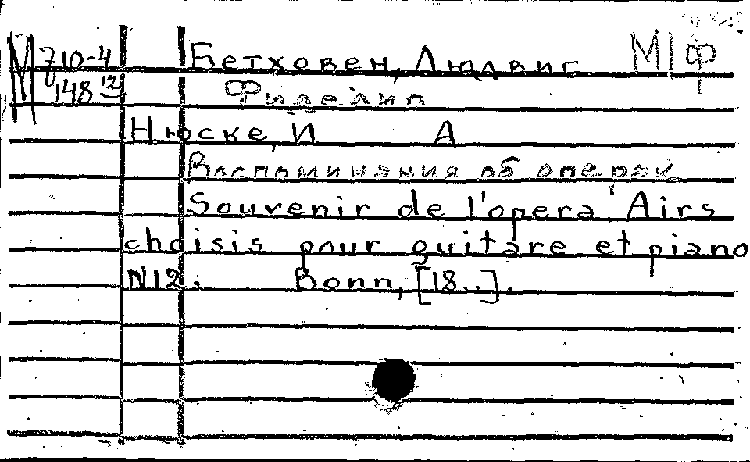 М 710-4 Бетховен, Людвиг М|ф
148 12 Фиделио
Нюске, И А
Воспоминания об операх
Souvenir de l'opera Airs
choisis pour guitare et piano
N12. Bonn, [18..].